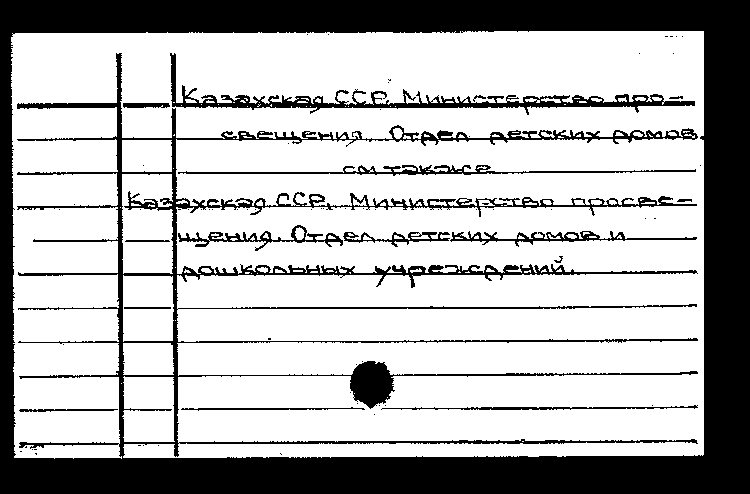 Казахская ССР. Министерство про-
свещения. Отдел детских домов.
см также
Казахская ССР. Министерство просве-
щения. Отдел детских домов и
дошкольных учреждений.